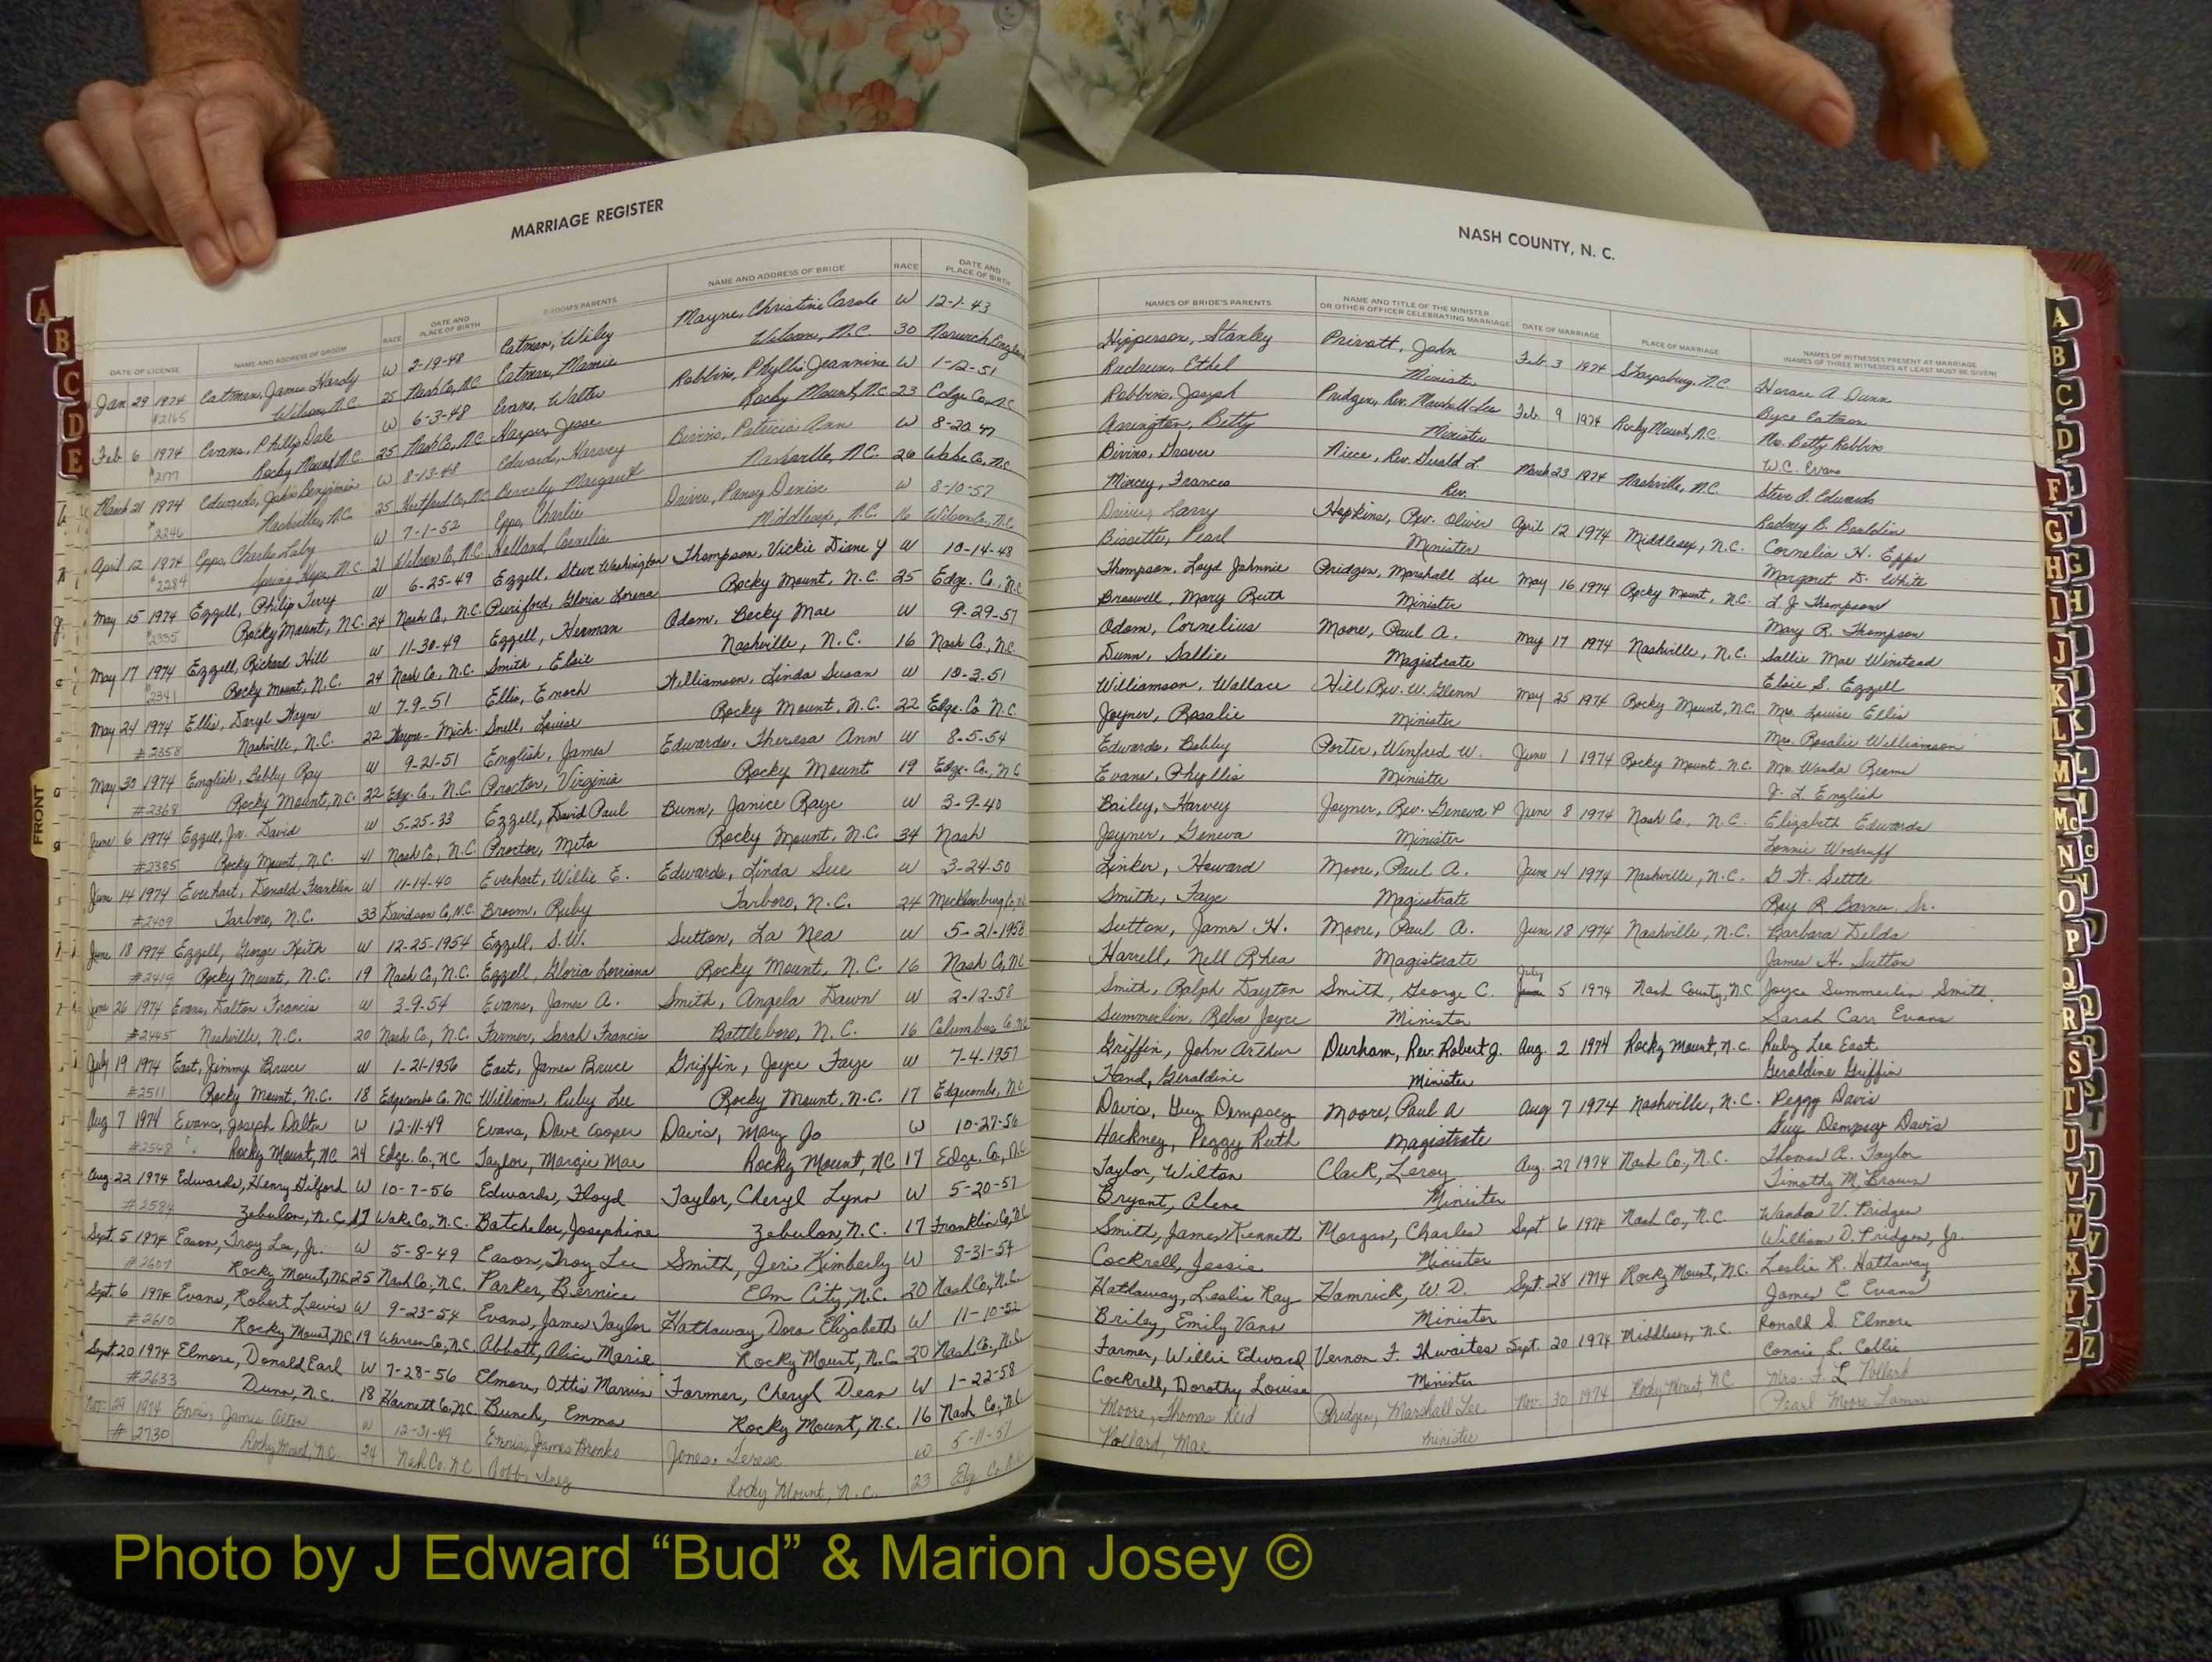 MARRIAGE REGISTER
DATE OF LICENSE NAME AND ADDRESS OF GROOM RACE DATE AND PLACE OF BIRTH GROOM'S PARENTS NAME AND ADDRESS OF BRIDE RACE DATE AND PLACE OF BIRTH
Jan 29 1974 Eatman, James Hardy W 2-19-48 Eatman, Wiley Mayne, Christine Carole W 12-1-43
#2165 Wilson, N.C. 25 Nash Co, N.C. Eatman, Mamie Wilson, N.C. 30 Norwich England
Feb 6 1974 Evans, Phillip Dale W 6-3-48 Evans, Walter Robbins, Phyllis Jeannine W 1-12-51
#2177 Rocky Mount, N.C. 25 Nash Co, N.C. Harper, Jesse Rocky Mount, N.C. 23 Edge Co, N.C.
March 21 1974 Edwards, John Benjimin W 8-13-48 Edward, Harvey Bivins, Patricia Ann W 8-20-47
#2246 Nashville, N.C. 25 Hertford Co, N.C. Beverly, Margaret Nashville, N.C. 26 Wake Co, N.C.
April 12 1974 Epps, Charles W 7-1-52 Epps, Charlie Driver, Pansy Denise W 8-10-57
#2284 Spring Hope, N.C. 21 Wilson Co, N.C. Holland, Cornelia Middlesex, N.C. 16 Wilson Co., N.C.
May 15 1974 Ezzell, Philip Terry W 6-25-49 Ezzell, Steve Washington Thompson, Vickie Diane Y W 10-14-48
#2335 Rocky Mount, N.C. 24 Nash Co, N.C. Puriford, Gloria Lorena Rocky Mount, N.C. 25 Edge. Co., N.C.
May 17 1974 Ezzell, Richard Hill W 11-30-49 Ezzell, Herman Odom, Becky Mae W 9-29-57
#2341 Rocky Mount, N.C. 24 Nash Co, N.C. Smith, Elsie Nashville, N.C. 16 Nash Co, N.C.
May 24 1974 Ellis, Daryl Wayne W 7-9-51 Ellis, Enoch Williamson, Linda Susan W 10-3-51
#2358 Nashville, N.C. 22 Wayne - Mich. Snell, Louise Rocky Mount, N.C. 22 Edge. Co N.C.
May 30 1974 English, Bobby Ray W 9-21-51 English, James Edwards, Theresa Ann W 8-5-54
#2368 Rocky Mount, N.C. 22 Edge. Co., N.C. Proctor, Virginia Rocky Mount 19 Edge. Co., N.C.
June 6 1974 Ezzell, Jr. David W 5-25-33 Ezzell, David Paul Bunn, Janice Raye W 3-9-40
#2385 Rocky Mount, N.C. 41 Nash Co, N.C. Proctor, Meta Rocky Mount, N.C. 34 Nash
June 14 1974 Everhart, Donald Franklin W 11-14-40 Everhart, Willie E. Edwards, Linda Sue W 3-24-50
#2409 Tarboro, N.C. 33 Davidson Co, N.C. Broom, Ruby Tarboro, N.C. 24 Mecklenburg Co,
June 18 1974 Ezzell, George Keith W 12-25-1954 Ezzell, S.W. Sutton, La Nea W 5-21-1958
#2419 Rocky Mount, N.C. 19 Nash Co, N.C. Ezzell, Gloria Lorriana Rocky Mount, N.C. 16 Nash Co, N.C.
June 26 1974 Evans, Dalton Francis W 3-9-54 Evans, James A. Smith, Angela Dawn W 2-12-58
#2445 Nashville, N.C. 20 Nash Co, N.C. Farmer, Sarah Francis Battleboro, N.C. 16 Columbus Co N.C.
July 19 1974 East, Jimmy Bruce W 1-21-1956 East, James Bruce Griffin, Joyce Faye W 7-4-1957
#2511 Rocky Mount, N.C. 18 Edgecombe Co, NC Williams, Ruby Lee Rocky Mount, N.C. 17 Edgecombe, N.C.
Aug 7 1974 Evans, Joseph Dalton W 12-11-49 Evans, Dave Cooper Davis, Mary Jo W 10-27-56
#2548 Rocky Mount, NC 24 Edge. Co, NC Taylor, Margie Mae Rocky Mount, NC 17 Edge. Co, N.C.
Aug 22 1974 Edwards, Henry Gilford W 10-7-56 Edwards, Floyd Taylor, Cheryl Lynn W 5-20-57
#2584 Zebulon, N.C. 17 Wake Co, N.C. Batchelor, Josephine Zebulon, N.C. 17 Franklin Co, N.C.
Sept. 5 1974 Eason, Troy Lee, Jr. W 5-8-49 Eason, Troy Lee Smith, Jeri Kimberly W 8-31-54
#2607 Rocky Mount, NC 25 Nash Co, N.C. Parker, Bernice Elm City, N.C. 20 Nash Co, N.C.
Sept. 6 1974 Evans, Robert Lewis W 9-23-54 Evans, James Taylor Hathaway, Dora Elizabeth W 11-10-53
#2610 Rocky Mount, NC 19 Warren Co, N.C. Abbott, Alice Marie Rocky Mount, N.C. 20 Nash Co., N.C.
Sept. 20 1974 Elmore, Donald Earl W 7-28-56 Elmore, Ottis Marvin Farmer, Cheryl Dean W 1-22-58
#2633 Dunn, N.C. 18 Harnett Co, N.C. Bunch, Emma Rocky Mount, N.C. 16 Nash Co, N.C.
Nov. 29 1974 Ennis, James Alton W 12-31-49 Ennis, James Bronko Jones, Teresa W 5-11-51
# 2730 Rocky Mount, N.C. 24 Nash Co. N.C. Cobb, Inez Rocky Mount, N.C. 23 Edge. Co.
NASH COUNTY, N. C.
NAMES OF BRIDE'S PARENTS NAME AND TITLE OF THE MINISTER OR OTHER OFFICER CELEBRATING MARRIAGE DATE OF MARRIAGE PLACE OF MARRIAGE NAMES OF WITNESSES PRESENT AT MARRIAGE (NAMES OF THREE WITNESSES AT LEAST MUST BE GIVEN)
Hipperson, Stanley Privott, John Feb. 3 1974 Sharpsburg, N.C. Horace A. Dunn
Rudrum, Ethel Minister Byce Eatmon
Robbins, Joseph Pridgen, Rev. Marshall Lee Feb. 9 1974 Rocky Mount, N.C. Mrs. Betty Robbins
Arrington, Betty Minister W.C. Evans
Bivins, Grover Niece, Rev. Gerald L. March 23 1974 Nashville, N.C. Steve D. Edwards
Mincey, Frances Rev. Rodney B. Bauldin
Driver, Larry Hopkins, Rev. Oliver April 12 1974 Middlesex, N.C. Cornelia H. Epps
Bissette, Pearl Minister Margaret D. White
Thompson, Loyd Johnnie Pridgen, Marshall Lee May 16 1974 Rocky Mount, N.C. L. J. Thompson
Braswell, Mary Ruth Minister Mary R. Thompson
Odom, Cornelius Moore, Paul A. May 17 1974 Nashville, N.C. Sallie Mae Winstead
Dunn, Sallie Magistrate Elsie S. Ezzell
Williamson, Wallace Hill, Rev. W. Glenn May 25 1974 Rocky Mount, N.C. Mrs. Louise Ellis
Joyner, Rosalie Minister Mrs. Rosalie Williamson
Edwards, Bobby Porter, Winfred W. June 1 1974 Rocky Mount, N.C. Mrs. Wanda Reams
Evans, Phyllis Minister J. L. English
Bailey, Harvey Joyner, Rev. Geneva P June 8 1974 Nash Co., N.C. Elizabeth Edwards
Joyner, Geneva Minister Lonnie Woodruff
Linker, Howard Moore, Paul A. June 14 1974 Nashville, N.C. G. W. Settle
Smith, Faye Magistrate Roy R. Barnes, Sr.
Sutton, James H. Moore, Paul A. June 18 1974 Nashville, N.C. Barbara Delda
Harrell, Nell Rhea Magistrate James H. Sutton
Smith, Ralph Dayton Smith, George C. June July 5 1974 Nash County, N.C Joyce Summerlin Smith.
Summerlin, Reba Joyce Minister Sarah Carr Evans
Griffin, John Arthur Durham, Rev. Robert J. Aug. 2 1974 Rocky Mount, N.C. Ruby Lee East
Hand, Geraldine Minister Geraldine Griffin
Davis, Guy Dempsey Moore, Paul A Aug 7 1974 Nashville, N.C. Peggy Davis
Hackney, Peggy Ruth Magistrate Guy Dempsey Davis
Taylor, Wilton Clark, Leroy Aug. 27 1974 Nash Co, N.C. Thomas A. Taylor
Bryant, Alene Minister Timothy M. Brown
Smith, James Kenneth Morgan, Charles Sept. 6 1974 Nash Co, N.C. Wanda V. Pridgen
Cockrell, Jessie Minister William D. Pridgen, Jr.
Hathaway, Leslie Ray Hamrick, W. D. Sept. 28 1974 Rocky Mount, N.C. Leslie R. Hathaway
Briley, Emily Vann Minister James E. Evans
Farmer, Willie Edward Vernon F. Thwaites Sept. 20 1974 Middlesex, N.C. Ronald S. Elmore
Cockrell, Dorothy Louise Minister Connie L. Collie
Moore, Thomas Reid Pridgen, Marshall Lee Nov. 30 1974 Rocky Mount, NC Mrs. F. L. Pollard
Pollard, Mae Minister Pearl Moore Lamm
A
B
C
D
E
FRONT
A
B
C
D
F
G
H
I
J
K
L
M
Mc
N
O
P
Q
R
S
T
U
V
W
X
Y
Z
Photo by J Edward “Bud” & Marion Josey ©